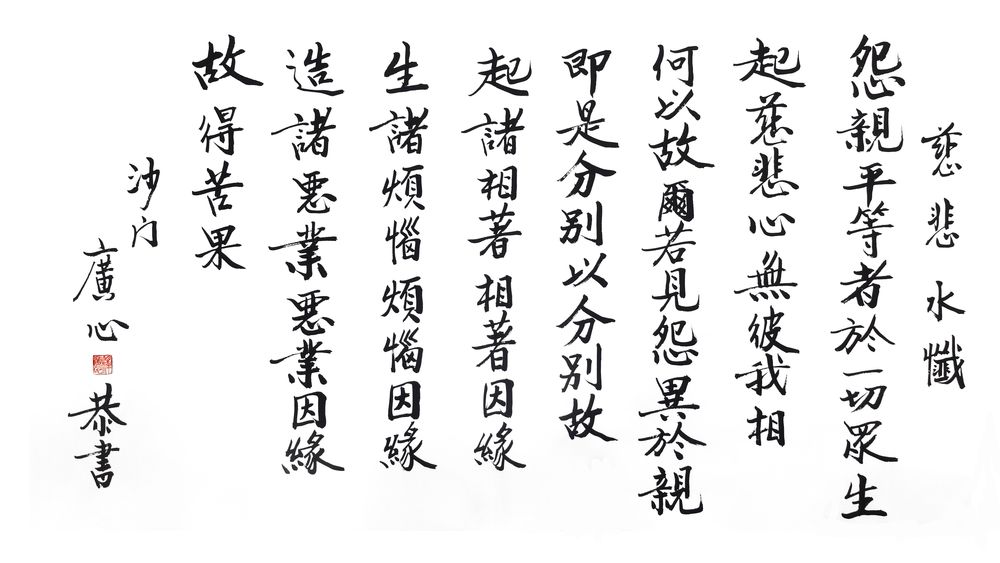 慈悲水懺
怨親平等者於一切眾生
起慈悲心無彼我相
何以故爾若見怨異於親
即是分別以分別故
起諸相著相著因緣
生諸煩惱煩惱因緣
造諸惡業惡業因緣
故得苦果
沙门
廣心
恭書